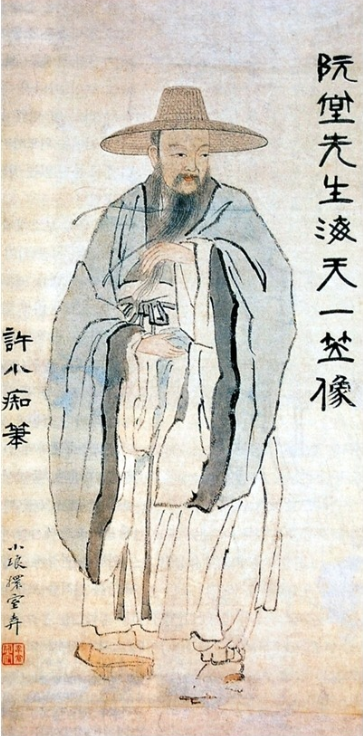 阮堂先生海天一笠像
許小痴筆
小琅環室弆